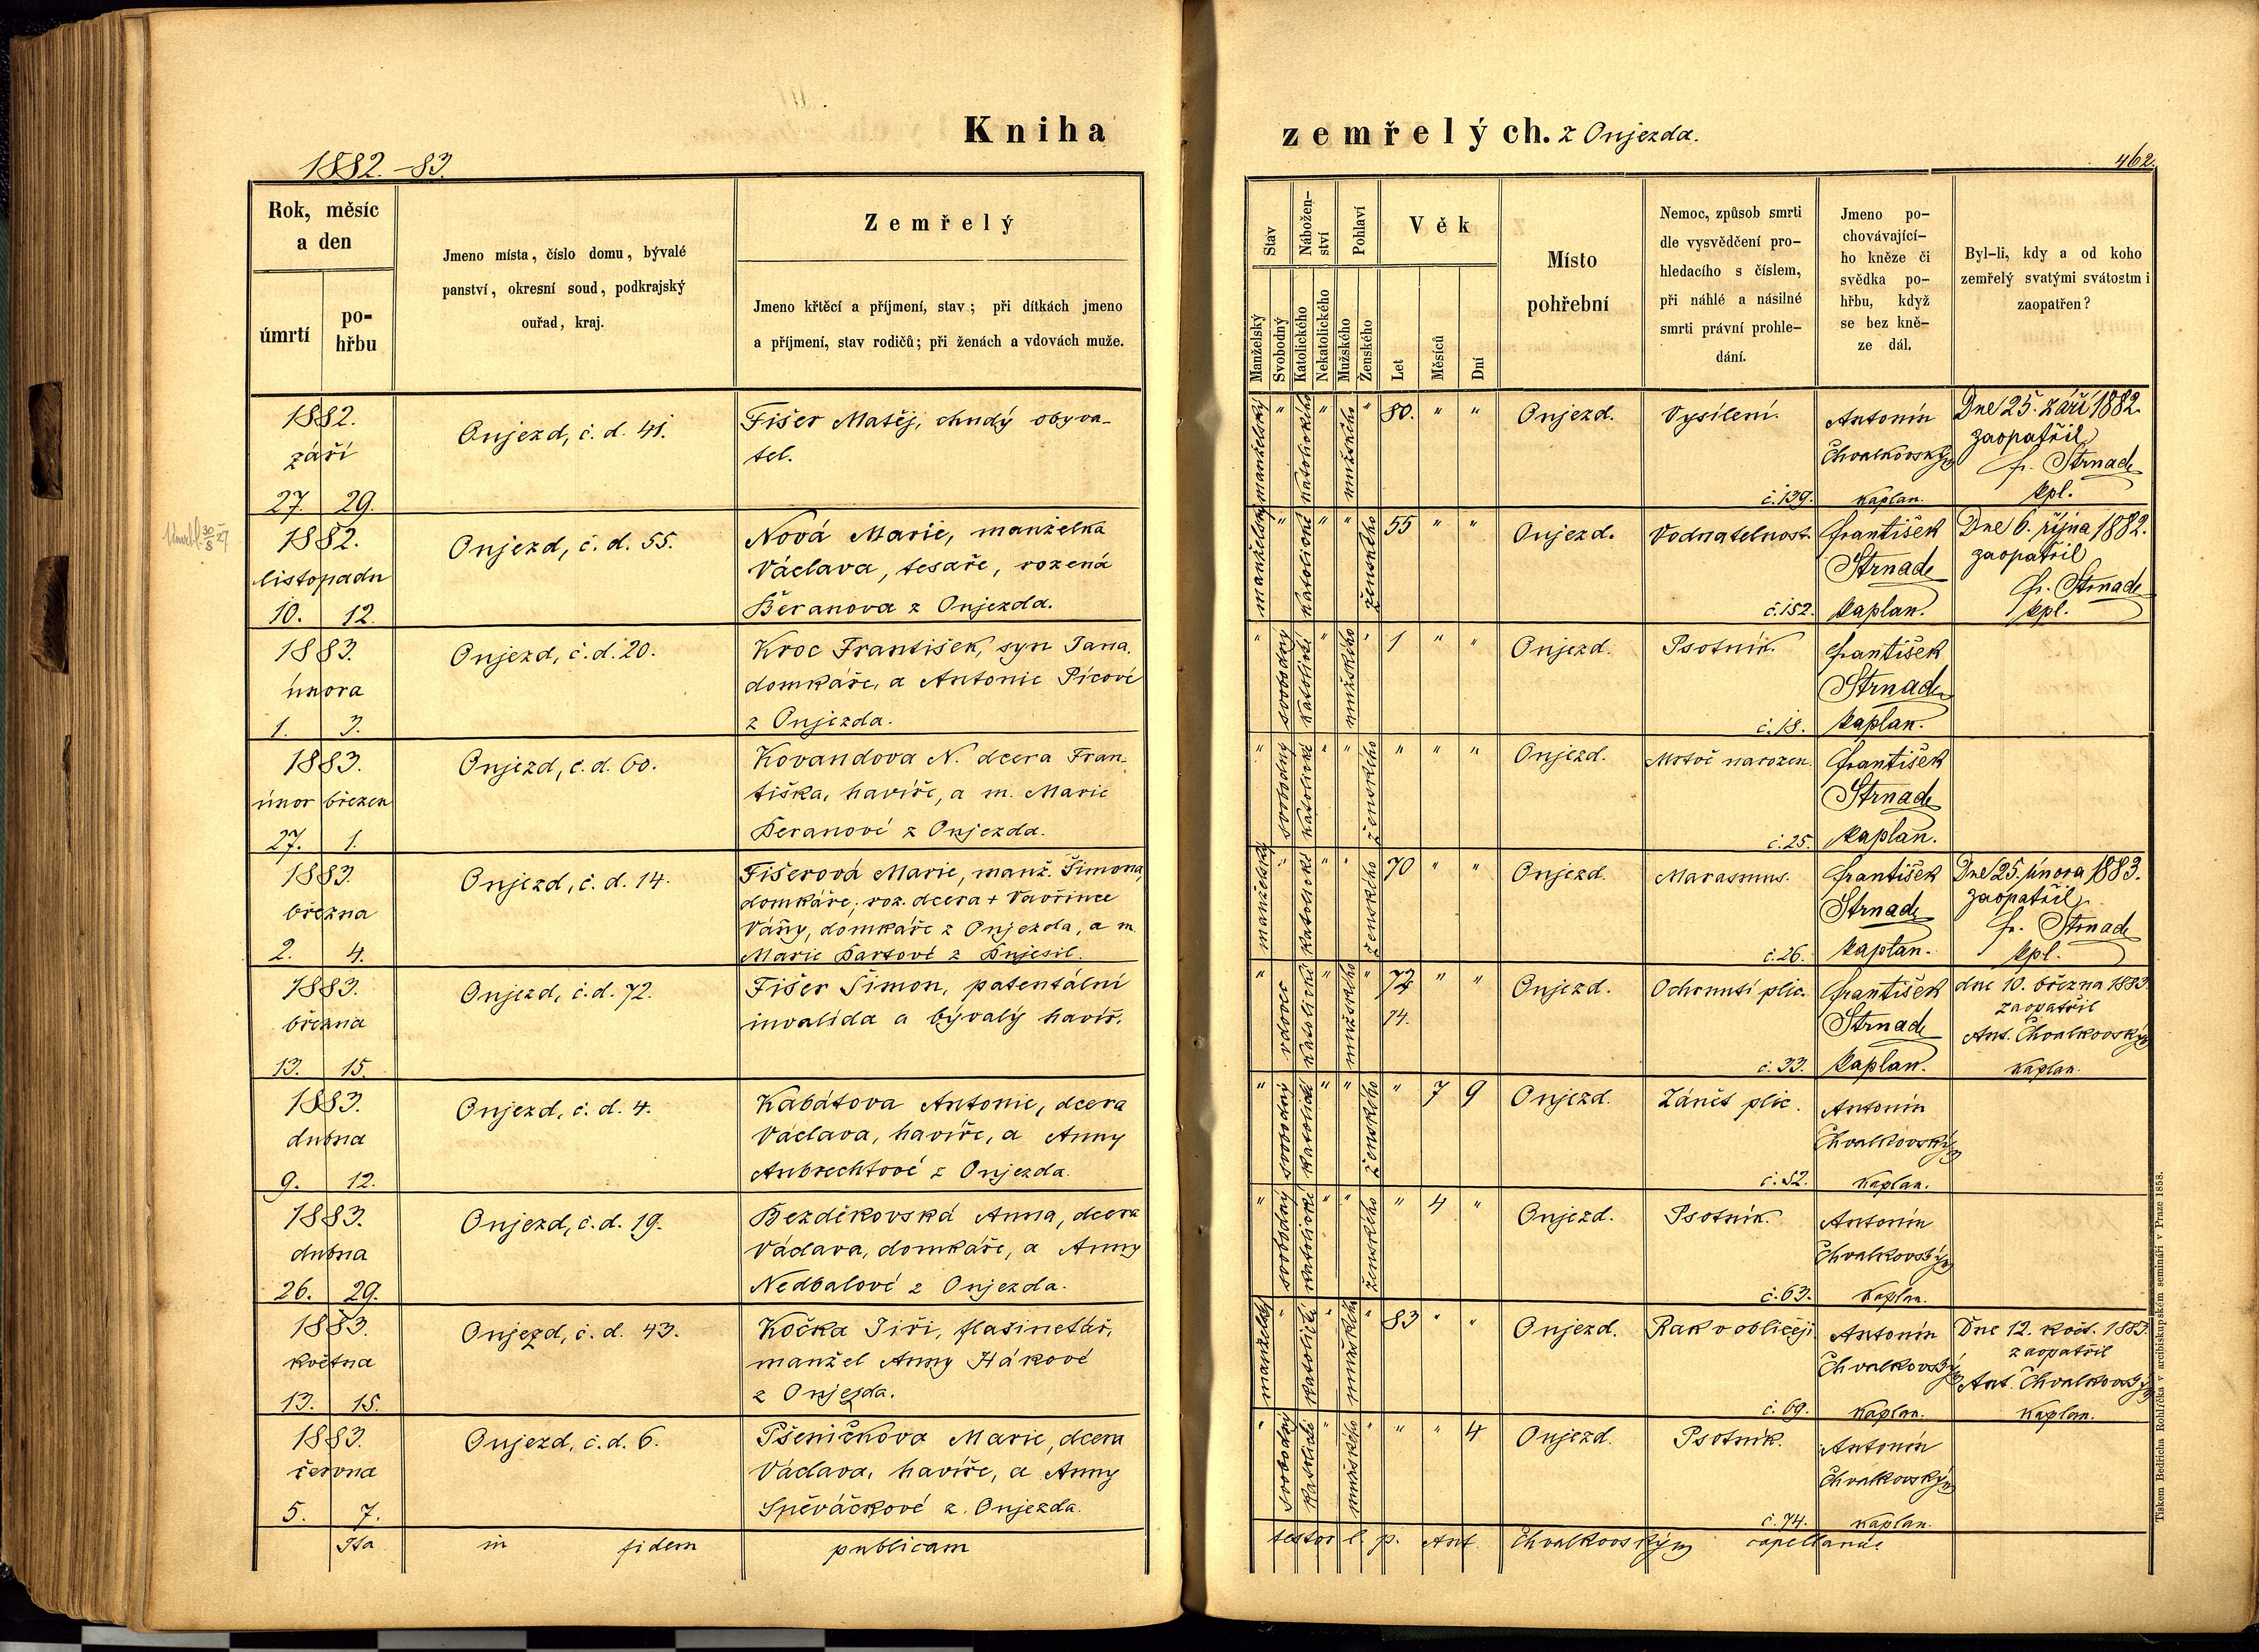 Kniha zemřelých. z Onjezda.
1882.-83.
462.
Rok, měsíc a den
úmrtí
pohřbu
Jmeno místa, číslo domu, bývalé
panství, okresní soud, podkrajský
ouřad, kraj.
Zemřelý
Jmeno křtěcí a příjmení, stav; při dítkách jmeno
a příjmení, stav rodičů; při ženách a vdovách muže.
Stav
Manželský
Svobodný
Nábožen-
ství
Katolického
Nekatolického
Pohlaví
Mužského
Ženského
Věk
Let
Měsíců
Dní
Místo
pohřební
Nemoc, způsob smrti
dle vysvědčení pro-
hledacího s číslem,
při náhlé a násilné
smrti právní prohle-
dání.
Jmeno po-
chovávající-
ho kněze či
svědka po-
hřbu, když
se bez kně-
ze dál.
Byl-li, kdy a od koho
zemřelý svatými svátostmi
zaopatřen?
1882.
září
27. 29.
Onjezd, č. d. 41.
Fišer Matěj, chudý obyva-
tel.
manželský " katolického " mužského " 80. " "
Onjezd.
Vysílení.
č. 139.
Antonín
Chvalkovský
kaplan.
Dne 25. září 1882.
zaopatřil
fr. Strnad
kpl.
1882.
listopadu
10. 12.
Onjezd, č. d. 55.
Nová Marie, manželka
Václava, tesaře, rozená
Beranova z Onjezda.
manželský " katolické " " ženského 55 " "
Onjezd.
Vodnatelnost.
č. 152.
František
Strnad
kaplan.
Dne 6. října 1882.
zaopatřil
fr. Strnad
kpl.
1883.
února
1. 3.
Onjezd, č. d. 20.
Kroc František, syn Jana,
domkáře, a Antonie Pícové
z Onjezda.
" svobodný katolické " mužského " 1 " "
Onjezd.
Psotník.
č. 18.
František
Strnad
kaplan.
1883.
únor březen
27. 1.
Onjezd, č. d. 60.
Kovandova N. dcera Fran-
tiška, havíře, a m. Marie
Beranové z Onjezda.
" svobodný katolické " " ženského " " "
Onjezd.
Mrtvě narozen.
č. 25.
František
Strnad
kaplan.
1883.
března
2. 4.
Onjezd, č. d. 14.
Fišerová Marie, manž. Šimona,
domkáře; roz. dcera + Vavřince
Váňy, domkáře z Onjezda, a m.
manželský " katolické " " ženského 70 " "
Onjezd.
Marasmus.
č. 26.
František
Strnad
kaplan.
Dne 25. února 1883.
zaopatřil
fr. Strnad
kpl.
1883.
března
13. 15.
Onjezd, č. d. 72.
Fišer Šimon, patentální
invalida a bývalý havíř.
" vdovec katolické " mužského " 72 " "
74.
Onjezd.
Ochrnutí plic.
č. 33.
František
Strnad
kaplan.
dne 10. března 1883.
zaopatřil
Ant. Chvalkovský
kaplan.
1883.
dubna
9. 12.
Onjezd, č. d. 4.
Kabátova Antonie, dcera
Václava, havíře, a Anny
Aubrechtové z Onjezda.
" svobodný katolické " " ženského " 7 9
Onjezd.
Zánět plic.
č. 52.
Antonín
Chvalkovský
kaplan.
1883.
dubna
26. 29.
Onjezd, č. d. 19.
Bezděkovská Anna, dcera
Václava, domkáře, a Anny
Nedbalové z Onjezda.
" svobodný katolické " " ženského " 4 "
Onjezd.
Psotník.
č. 63.
Antonín
Chvalkovský
kaplan.
1883.
května
13. 15.
Onjezd, č. d. 43.
Kočka Jiří, flašinetář,
manžel Anny Hákové
z Onjezda.
manželský " katolické " mužského " 83 " "
Onjezd.
Rak v obličeji
č. 69.
Antonín
Chvalkovský
kaplan.
Dne 12. květ. 1883.
zaopatřil
Ant. Chvalkovský
kaplan.
1883.
června
5. 7.
Onjezd, č. d. 6.
Pšeničkova Marie, dcera
Václava, havíře, a Anny
Spěváčkové z Onjezda.
" svobodný katolické " mužského " " " 4
Onjezd.
Psotník.
č. 74.
Antonín
Chvalkovský
kaplan.
Ita in fidem publicam testor l. p. Ant. Chvalkovský capellanus
Tiskem Bedřicha Rohlíčka v arcibiskupském semináři v Praze 1858.